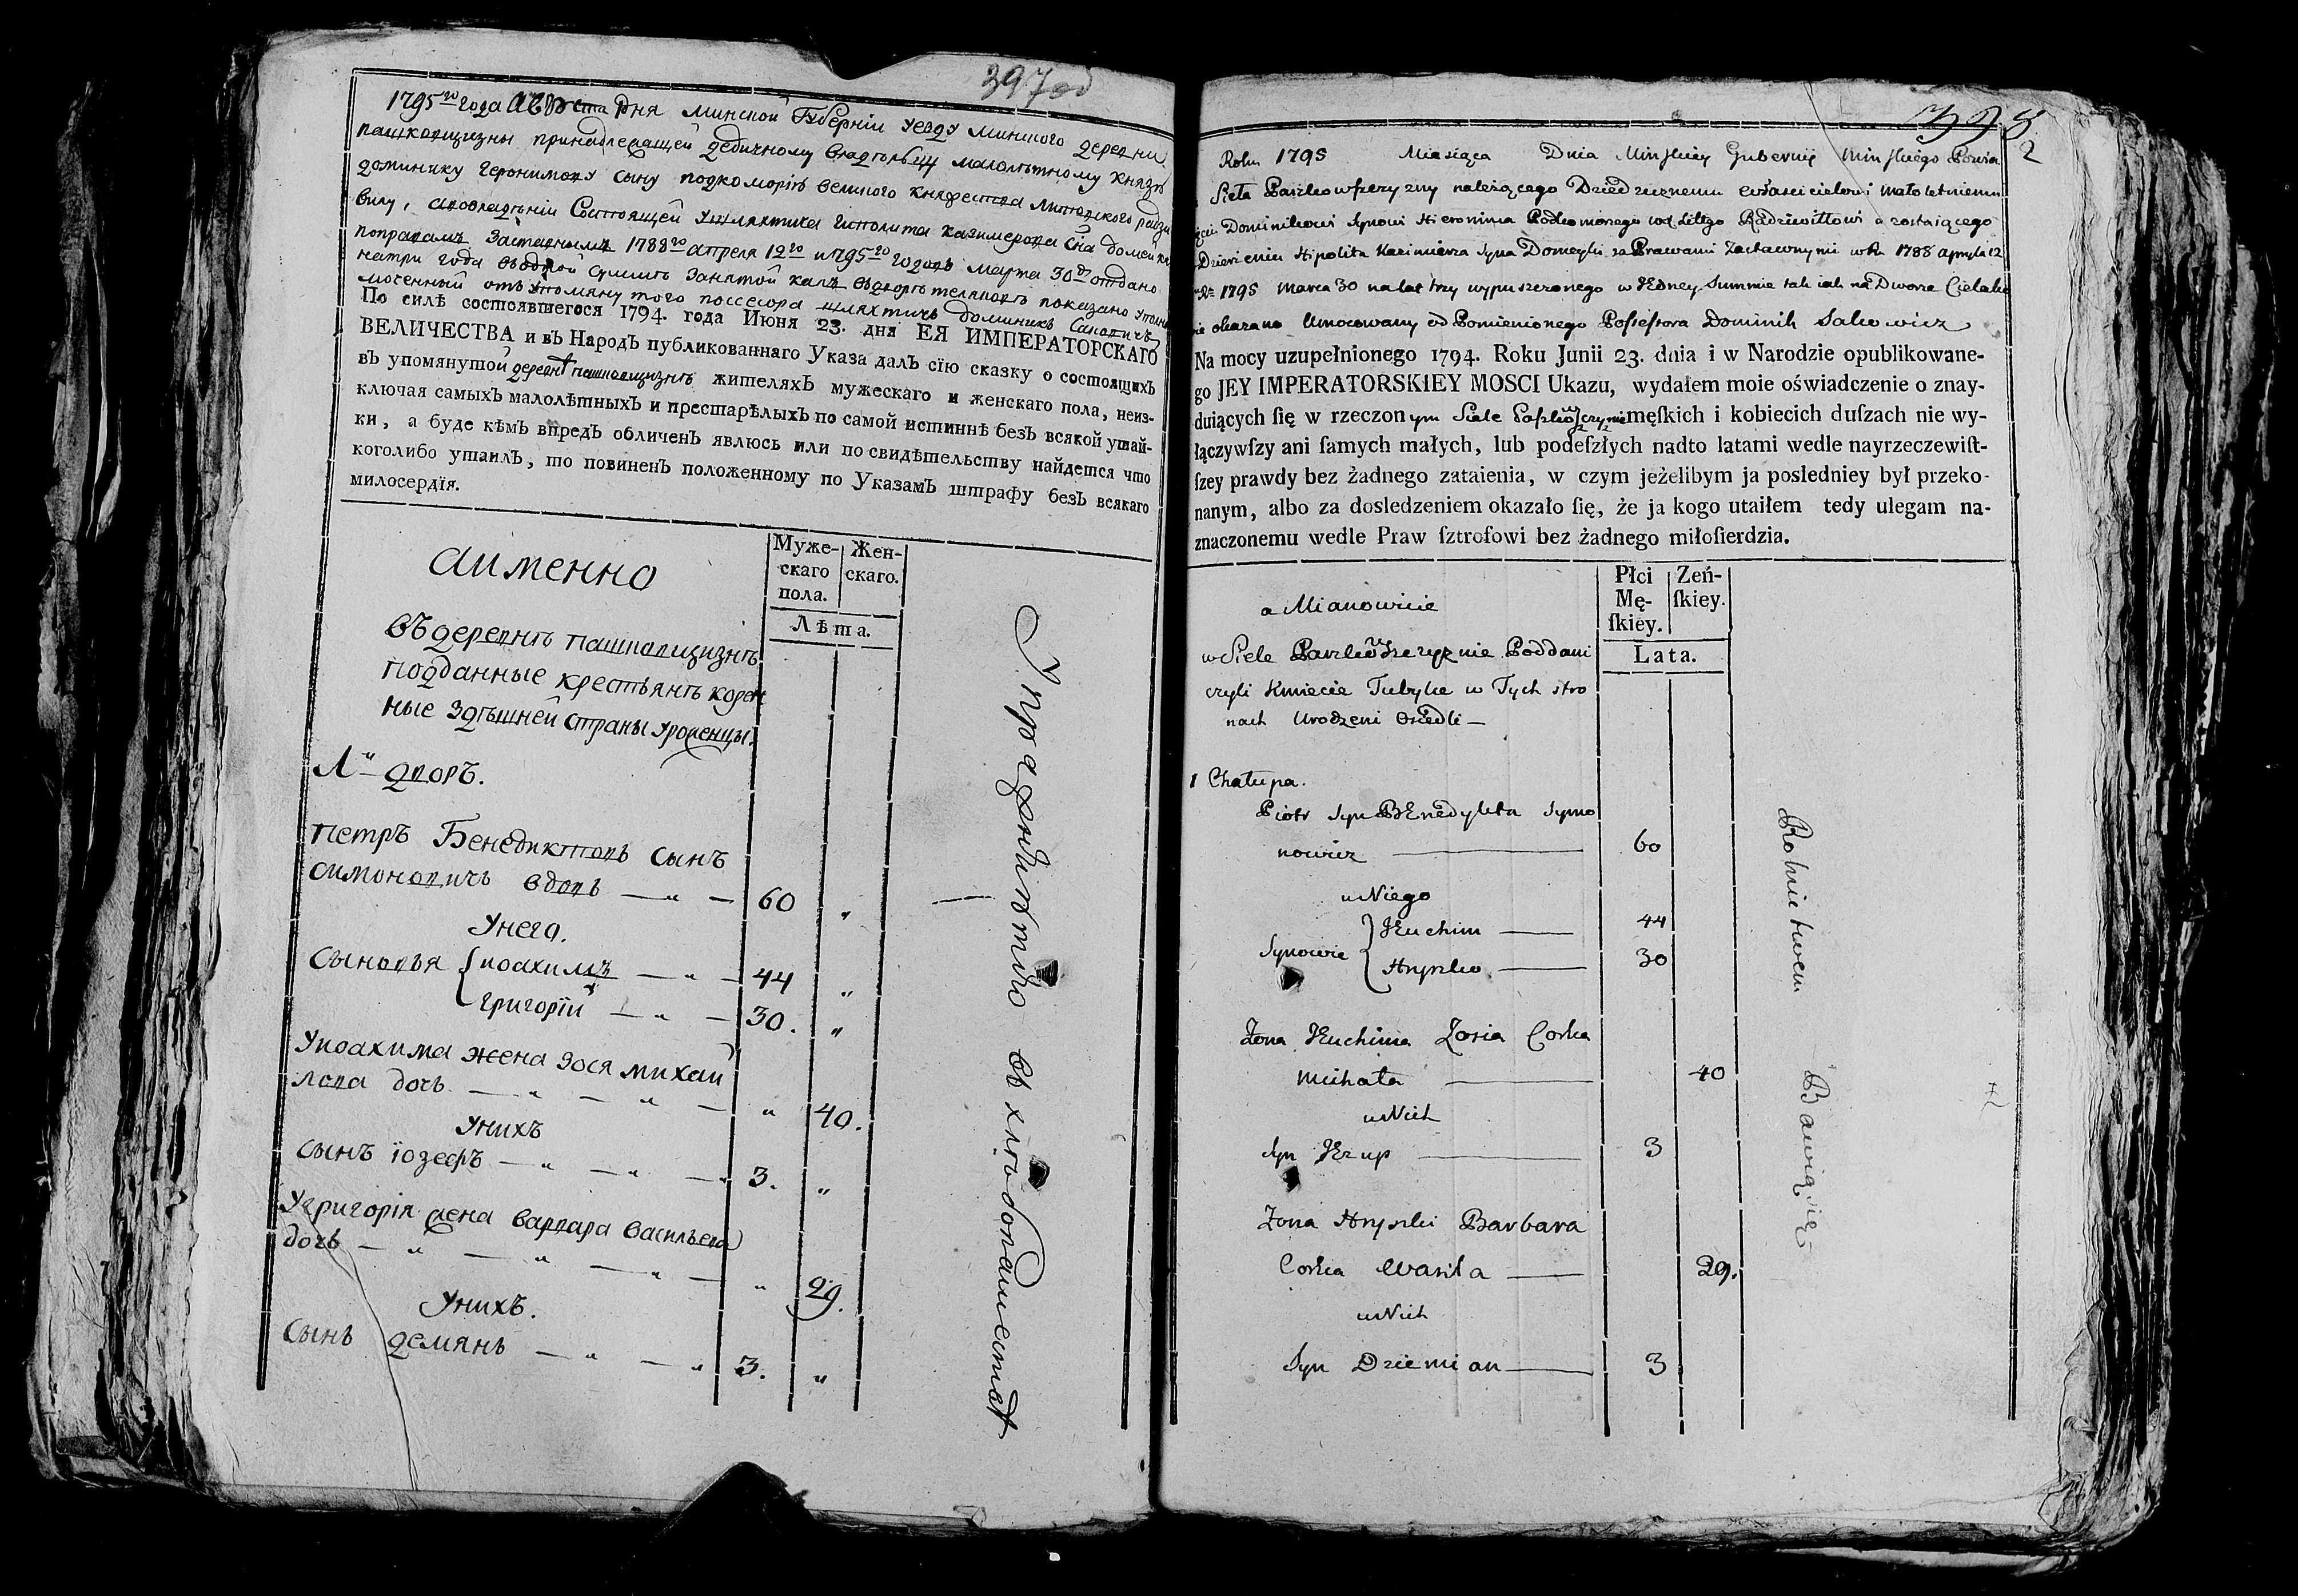 397 об
1795го года Августа дня Минской Губерніи уезду Минского деревни
пашковщизны принадлежащей дедичному владѣльцу малолѣтному князю
доминику Геронимову сыну подкоморіѣ великого княжества Литовского радзи
вилу, аповладѣніи Состоящей ушляхтича Ипполита казимерова сна домейки
поправамъ Заставнымъ 1788го апреля 12го и 795го годовъ марта 30го отдано
натри года въодной суммѣ занятой какъ въдворѣ телявовѣ показано уполно
моченный отъ упомянутого поссесора шляхтичъ доминикъ Саковичъ
По силѣ состоявшегося 1794. года Июня 23. дня ЕЯ ИМПЕРАТОРСКАГО
ВЕЛИЧЕСТВА и въ Народъ публикованнаго Указа далъ сїю сказку о состоящихъ
въ упомянутой деревнѣ пашковщизнѣ жителяхъ мужескаго и женскаго пола, неиз-
ключая самыхъ малолѣтныхъ и престарѣлыхъ по самой истиннѣ безъ всякой утай-
ки, а буде кѣмъ впредъ обличенъ явлюсь или по свидѣтельству найдется что
коголибо утаилъ, то повиненъ положенному по Указамъ штрафу безъ всякаго
милосердїя.
аименно
Муже-
скаго
пола.
Жен-
скаго.
Лѣта.
въдеревнѣ пашковщизнѣ
подданные крестьянѣ корен
ные здѣшней страны уроженцы.
дворъ.
петръ Бенедиктовъ сынъ
симоновичъ вдовъ — „ — 60 „
Унего.
сыновья { иоахимъ — „ — 44 „
григорїй — „ — 30. „
Уиоахима жена зося михаи
лова дочь — „ — „ — „ 40.
Унихъ
сынъ їозефъ — „ — „ — 3. „
Угригорія жена варвара васильева
дочь — „ — „ — „ — „ 29.
Унихъ.
сынъ демянъ — „ — „ 3. „
Упражняются въ хлѣбопашествѣ
398
2
Roku 1795 Miesiąca Dnia Minskiey Gubernii Minskiego Powia
Sieła Paszkowszczyzny należącego Dziedzicznemu własicielowi małoletniemu
Dominikowi Synowi Hieronima Podkomorzego wo Litgo Radziwiłłowi a zostaiącego
Dzierżeniu Hipolita Kazimierza syna Domeyki za Prawami zastawnymi w Ru 1788 apryla 12
1795 Marca 30 na lat trzy wypuszczonego w Jedney Summie tak iak na Dworze Cielako
ie okazano Umocowany od Pomienionego Possessora Dominik Sakowicz
Na mocy uzupełnionego 1794. Roku Junii 23. dnia i w Narodzie opublikowane-
go JEY IMPERATORSKIEY MOSCI Ukazu, wydałem moie oświadczenie o znay-
duiących ſię w rzeczonym Siele Paszkowszczyznie męſkich i kobiecich duſzach nie wy-
łączywſzy ani ſamych małych, lub podeſzłych nadto latami wedle nayrzeczewiſt-
ſzey prawdy bez żadnego zataienia, w czym jeżelibym ja posledniey był przeko-
nanym, albo za dosledzeniem okazało ſię, że ja kogo utaiłem tedy ulegam na-
znaczonemu wedle Praw ſztrofowi bez żadnego miłoſierdzia.
a Mianowicie
Płci
Mę-
ſkiey.
Zeń-
ſkiey.
Lata.
w Siele Paszkowszczyznie Poddani
czyli Kmiecie Tubylce w Tych stro
nach Urodzeni Osiedli —
1 Chałupa.
Piotr Syn Benedykta Symo
nowicz — 60
u Niego
Synowie { Jeuchim — 44
Hryszko — 30
Żona Jeuchima Zosia Corka
Michała — 40
u Nich
Syn Jezup — 3
Żona Hryszki Barbara
Corka Wasila — 29.
u Nich
Syn Dziemian — 3
Rolnictwem Bawią się